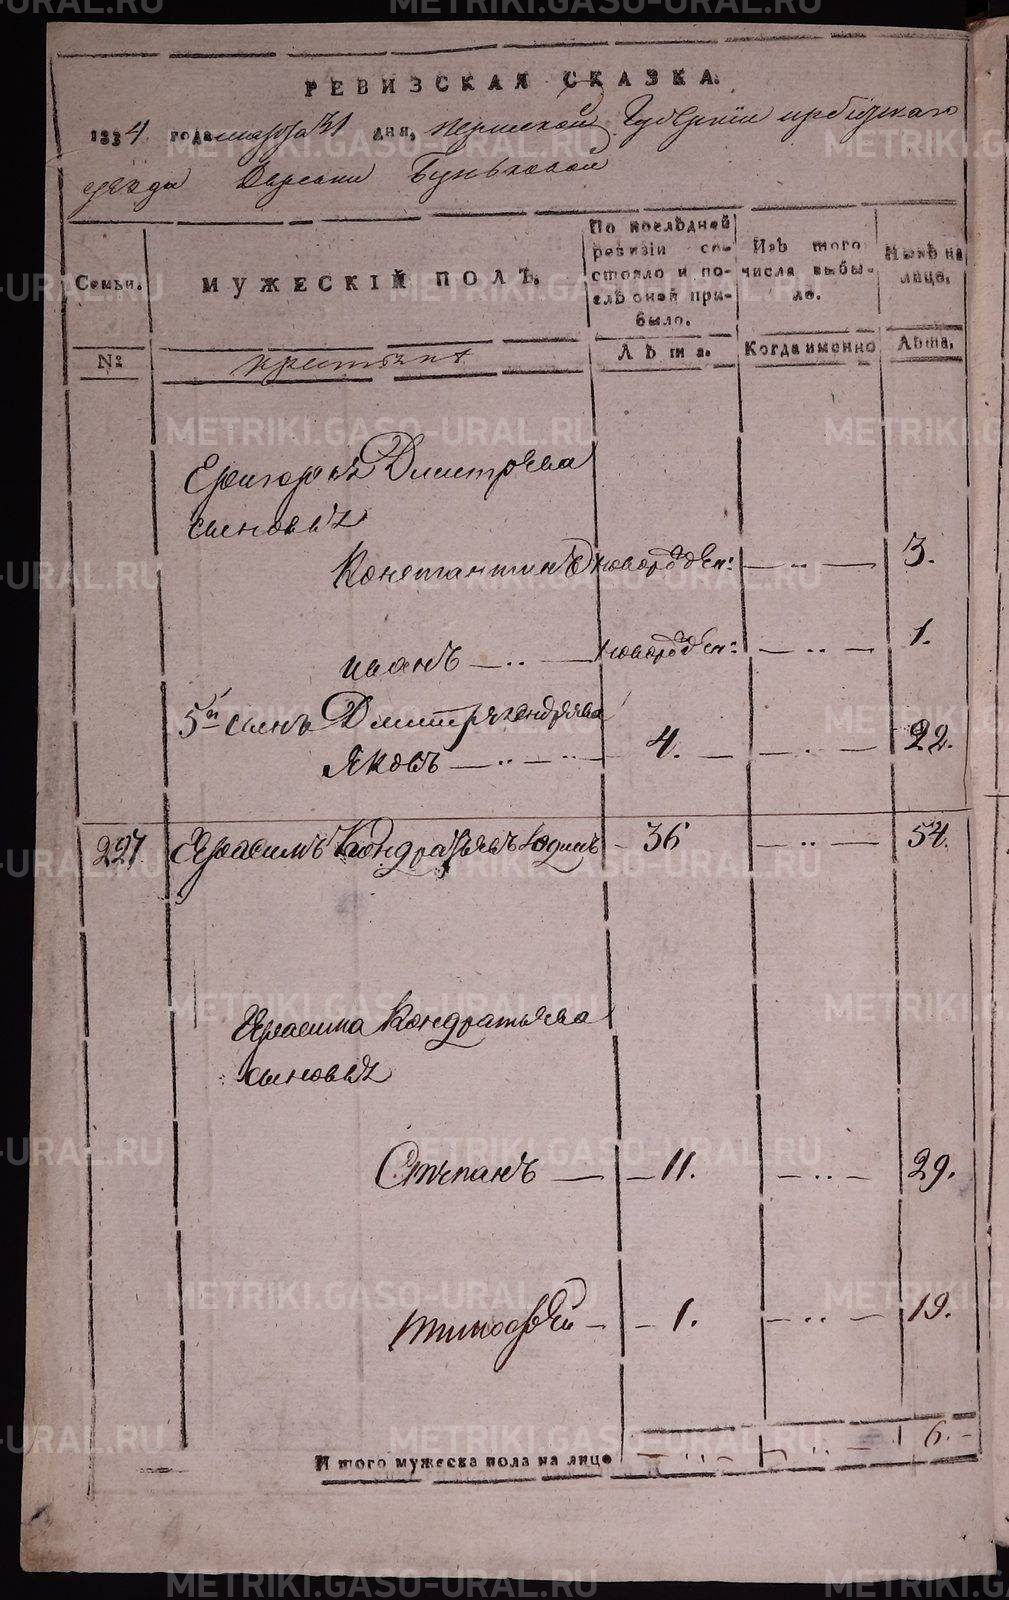 РЕВИЗСКАЯ СКАЗКА.
1834 года марта 31 дня, Пермской Губернии ирбицкаго
уезда Деревни Буньковой
Семьи.
МУЖЕСКІЙ ПОЛЪ.
По послѣдней ревизіи состояло и послѣ оной прибыло.
Изъ того числа выбыло.
Нынѣ на лице.
№
крестьяня
Лѣта.
Когда именно
Лѣта.
Григорья Дмитрева
сыновья
Константинъ новорожден: 3.
иванъ новорожден: 1.
5й сынъ Дмитрея
Яковъ 4. 22.
227. Герасимъ Кондратьевъ Юдинъ 36 54.
Герасима Кондратьева
сыновья
Степанъ 11. 29.
тимофѣй 1. 19.
Итого мужеска пола на лице 6.
METRIKI.GASO-URAL.RU